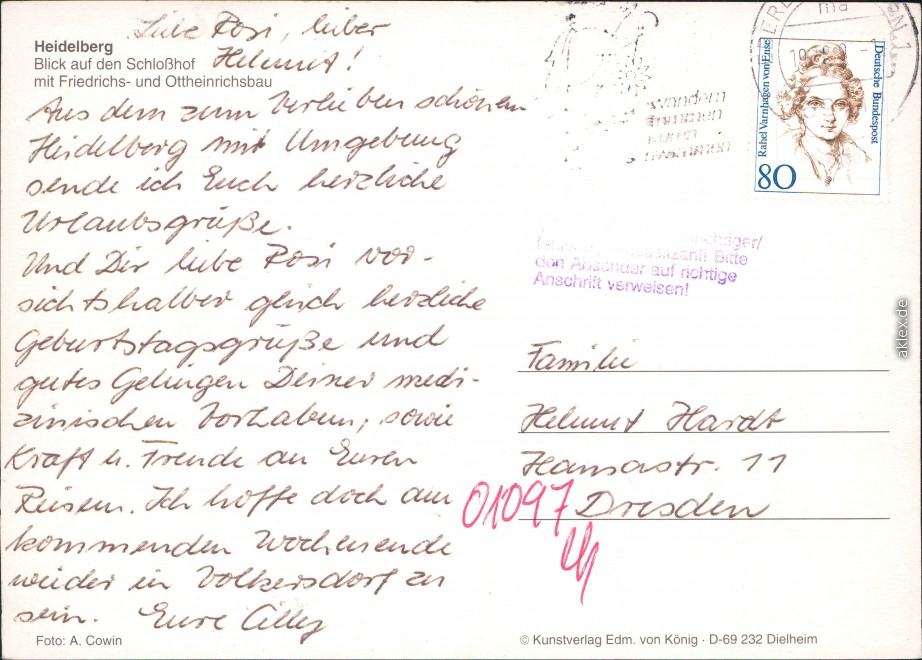 Heidelberg
Blick auf den Schloßhof
mit Friedrichs- und Ottheinrichsbau
Liebe Rosi, lieber
Helmut!
Aus dem zum Verlieben schönen
Heidelberg mit Umgebung
sende ich Euch herzliche
Urlaubsgrüße.
Und Dir liebe Rosi vor-
sichtshalber gleich herzliche
Geburtstagsgrüße und
gutes Gelingen Deiner medi-
zinischen Vorhaben, sowie
Kraft u. Freude an Euren
Reisen. Ich hoffe doch am
kommenden Wochenende
wieder in Volkersdorf zu
sein. Eure Cilly
Foto: A. Cowin
Rahel Varnhagen von Ense
Deutsche Bundespost
80
Bitte
den Absender auf richtige
Anschrift verweisen!
Familie
Helmut Hardt
Hansastr. 11
01097 Dresden
© Kunstverlag Edm. von König · D-69 232 Dielheim
aklex.de